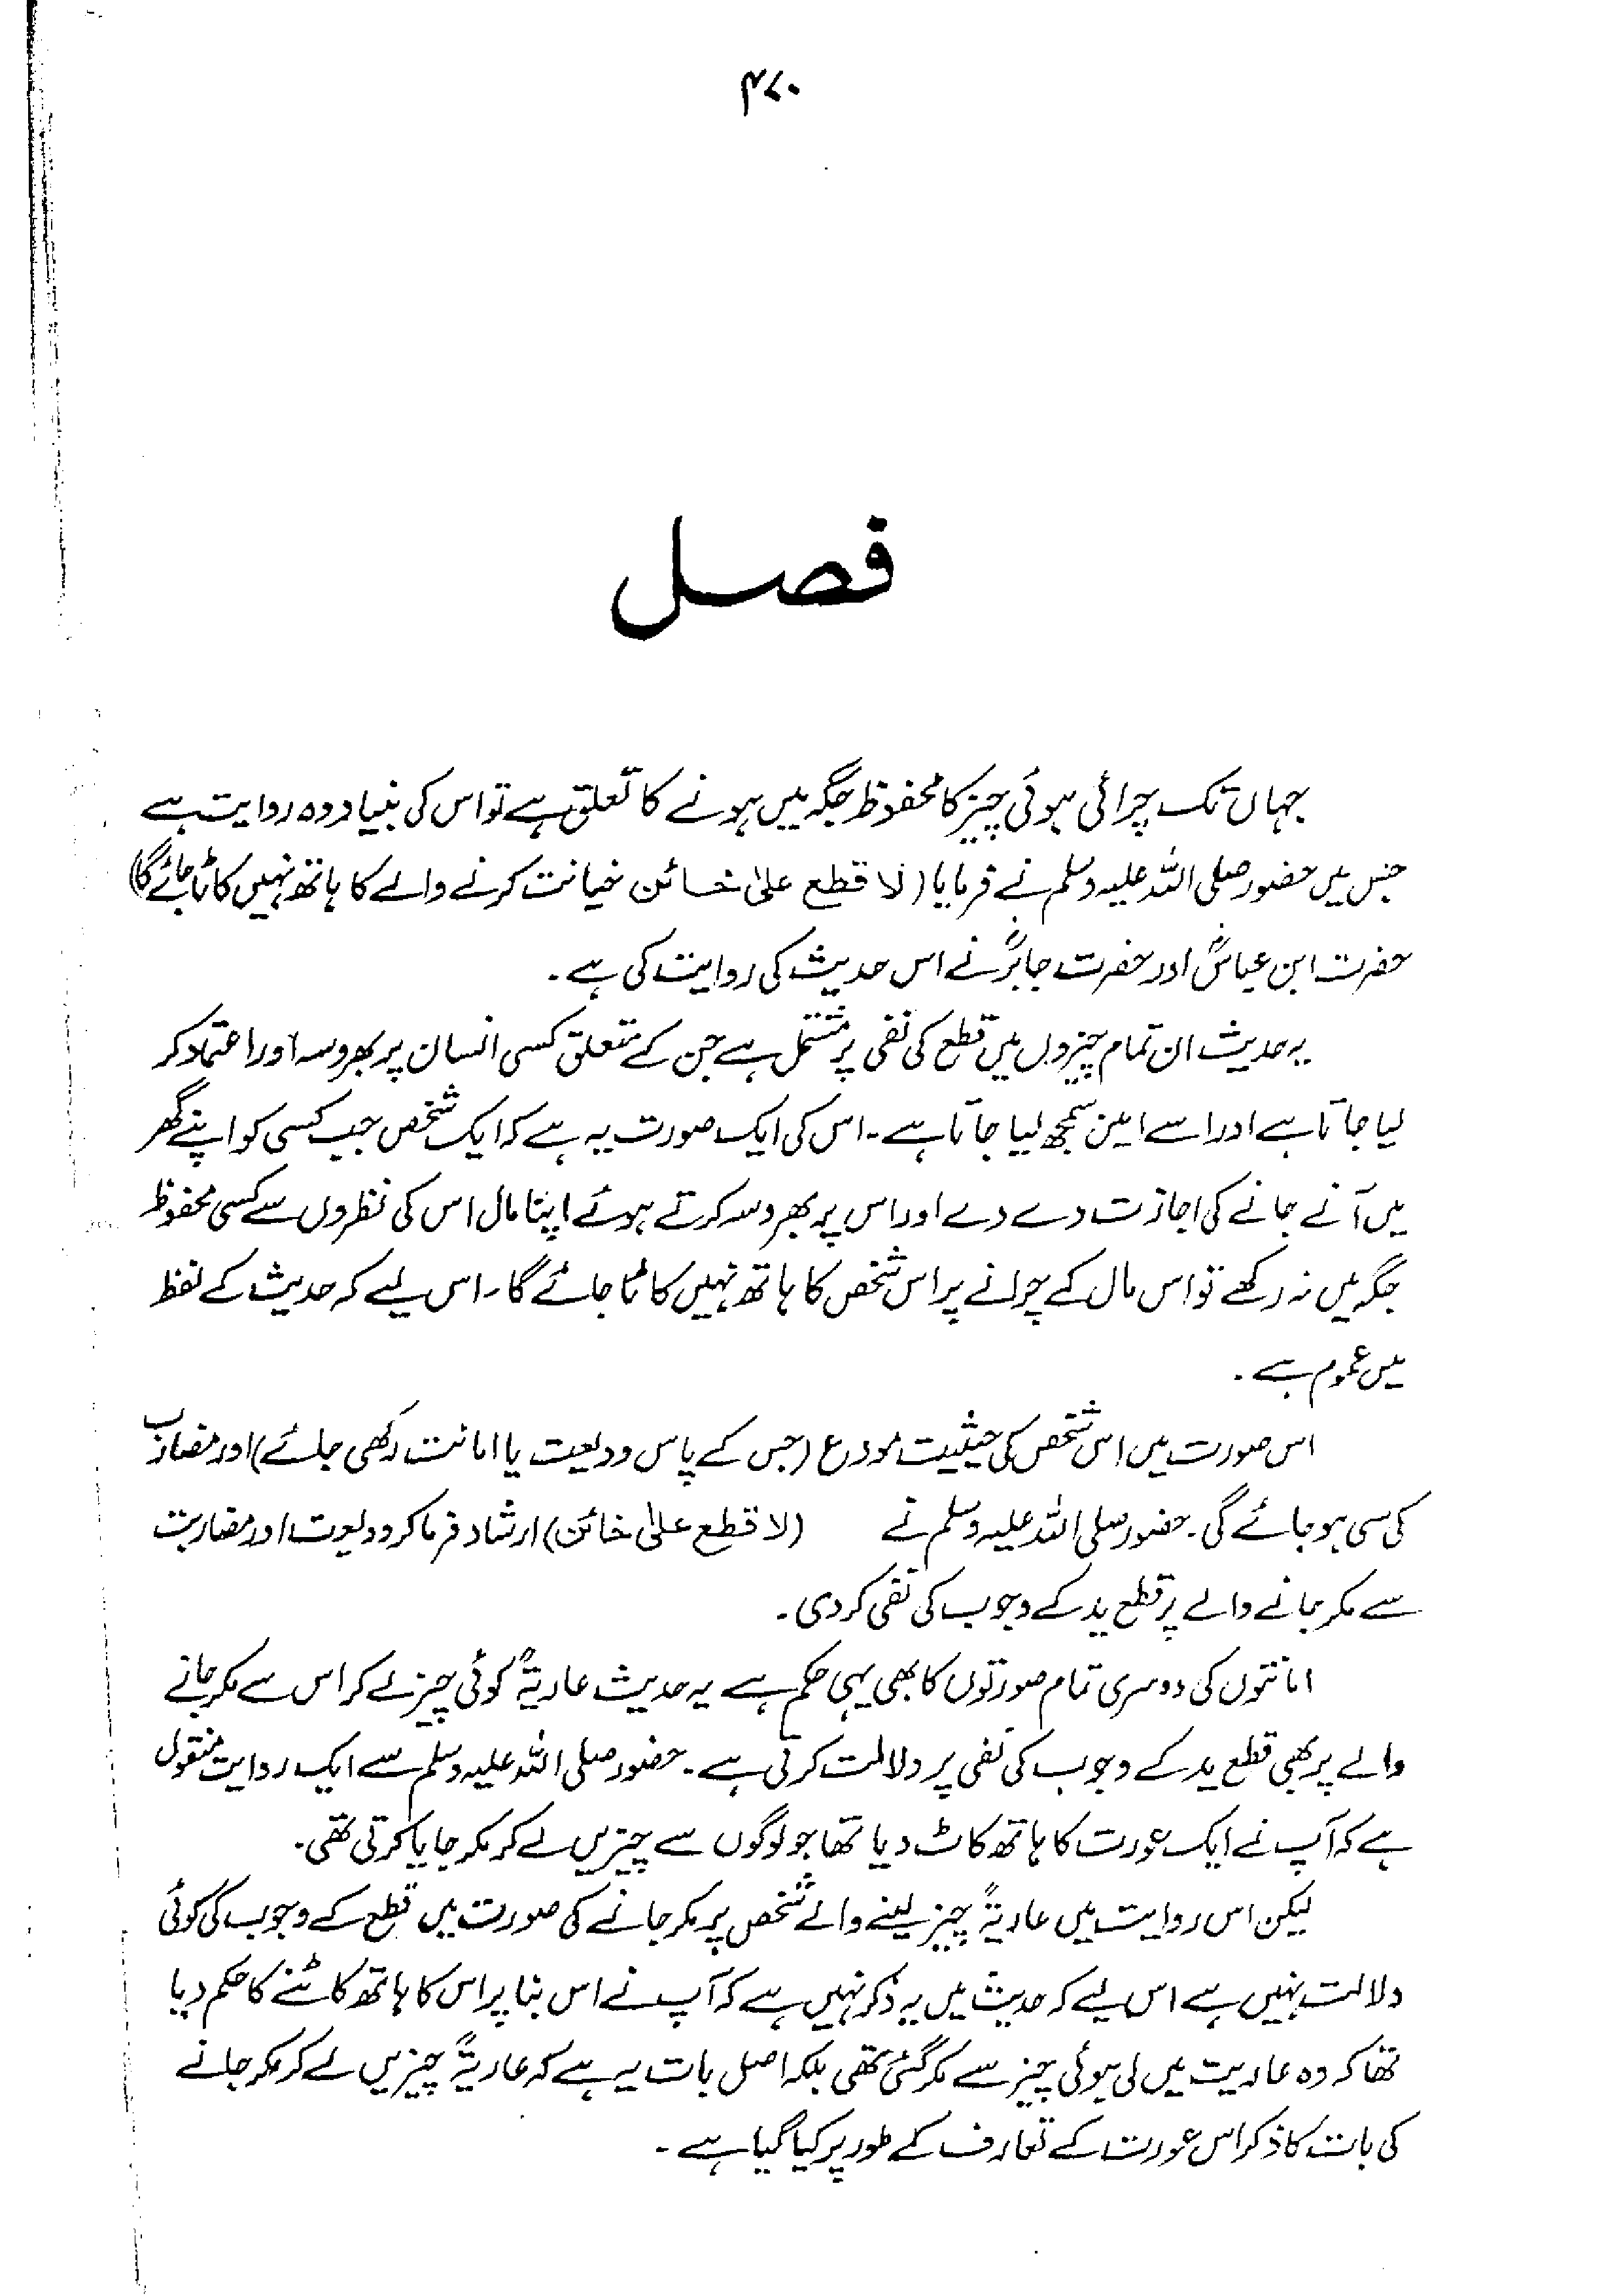 ۴۷۰
فصل
جہاں تک چرائی ہوئی چیز کا محفوظ جگہ میں ہونے کا تعلق ہے تو اس کی بنیاد وہ روایت ہے
جس میں حضور صلی اللہ علیہ وسلم نے فرمایا (لا قطع علیٰ خائن خیانت کرنے والے کا ہاتھ نہیں کاٹا جائے گا)
حضرت ابن عباسؓ اور حضرت جابرؓ نے اس حدیث کی روایت کی ہے۔
یہ حدیث ان تمام چیزوں میں قطع کی نفی پر مشتمل ہے جن کے متعلق کسی انسان پر بھروسہ اور اعتماد کر
لیا جاتا ہے اور اسے امین سمجھ لیا جاتا ہے۔ اس کی ایک صورت یہ ہے کہ ایک شخص جب کسی کو اپنے گھر
میں آنے جانے کی اجازت دے دے اور اس پر بھروسہ کرتے ہوئے اپنا مال اس کی نظروں سے کسی محفوظ
جگہ میں نہ رکھے تو اس مال کے چرانے پر اس شخص کا ہاتھ نہیں کاٹا جائے گا۔ اس لیے کہ حدیث کے لفظ
میں عموم ہے۔
اس صورت میں اس شخص کی حیثیت مودع (جس کے پاس ودیعت یا امانت رکھی جائے) اور مضارب
کی سی ہو جائے گی۔ حضور صلی اللہ علیہ وسلم نے (لا قطع علیٰ خائن) ارشاد فرما کر ودیعت اور مضاربت
سے مکر جانے والے پر قطع ید کے وجوب کی نفی کر دی۔
امانتوں کی دوسری تمام صورتوں کا بھی یہی حکم ہے یہ حدیث عاریۃً کوئی چیز لے کر اس سے مکر جانے
والے پر بھی قطع ید کے وجوب کی نفی پر دلالت کرتی ہے۔ حضور صلی اللہ علیہ وسلم سے ایک روایت منقول
ہے کہ آپ نے ایک عورت کا ہاتھ کاٹ دیا تھا جو لوگوں سے چیزیں لے کر مکر جایا کرتی تھی۔
لیکن اس روایت میں عاریۃً چیز لینے والے شخص پر مکر جانے کی صورت میں قطع کے وجوب کی کوئی
دلالت نہیں ہے اس لیے کہ حدیث میں یہ ذکر نہیں ہے کہ آپ نے اس بنا پر اس کا ہاتھ کاٹنے کا حکم دیا
تھا کہ وہ عاریت میں لی ہوئی چیز سے مکر گئی تھی بلکہ اصل بات یہ ہے کہ عاریۃً چیزیں لے کر مکر جانے
کی بات کا ذکر اس عورت کے تعارف کے طور پر کیا گیا ہے۔